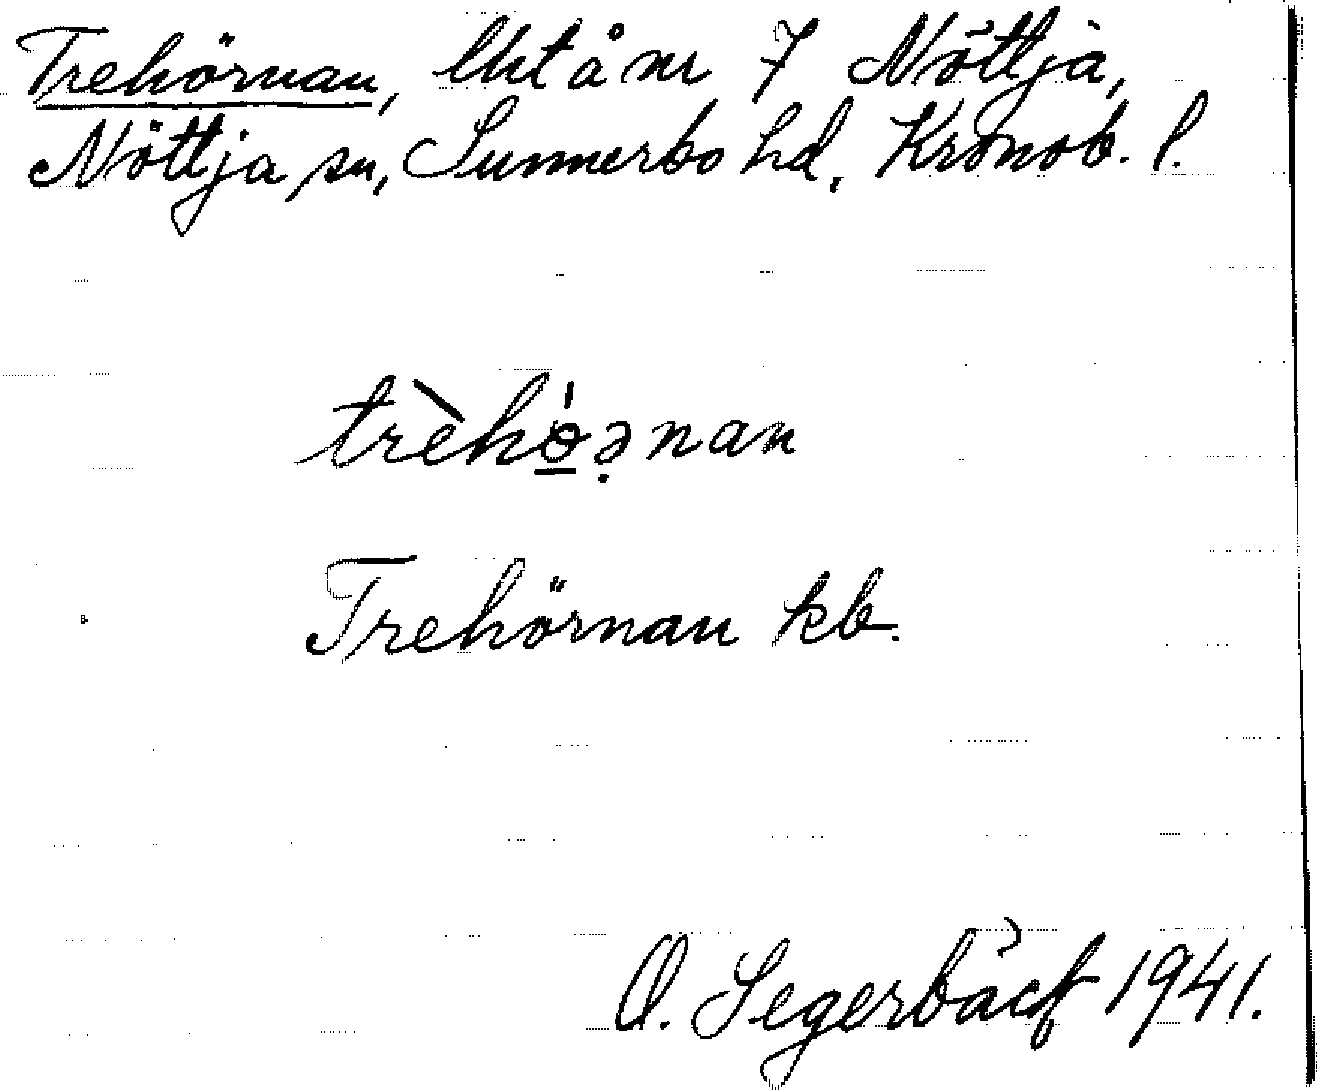 Trehörnan, lht å nr 7 Nöttja,
Nöttja sn, Sunnerbo hd, Kronob. l.
trèhǿ̲ə̣nan
Trehörnan kb.
O. Segerbäck 1941.